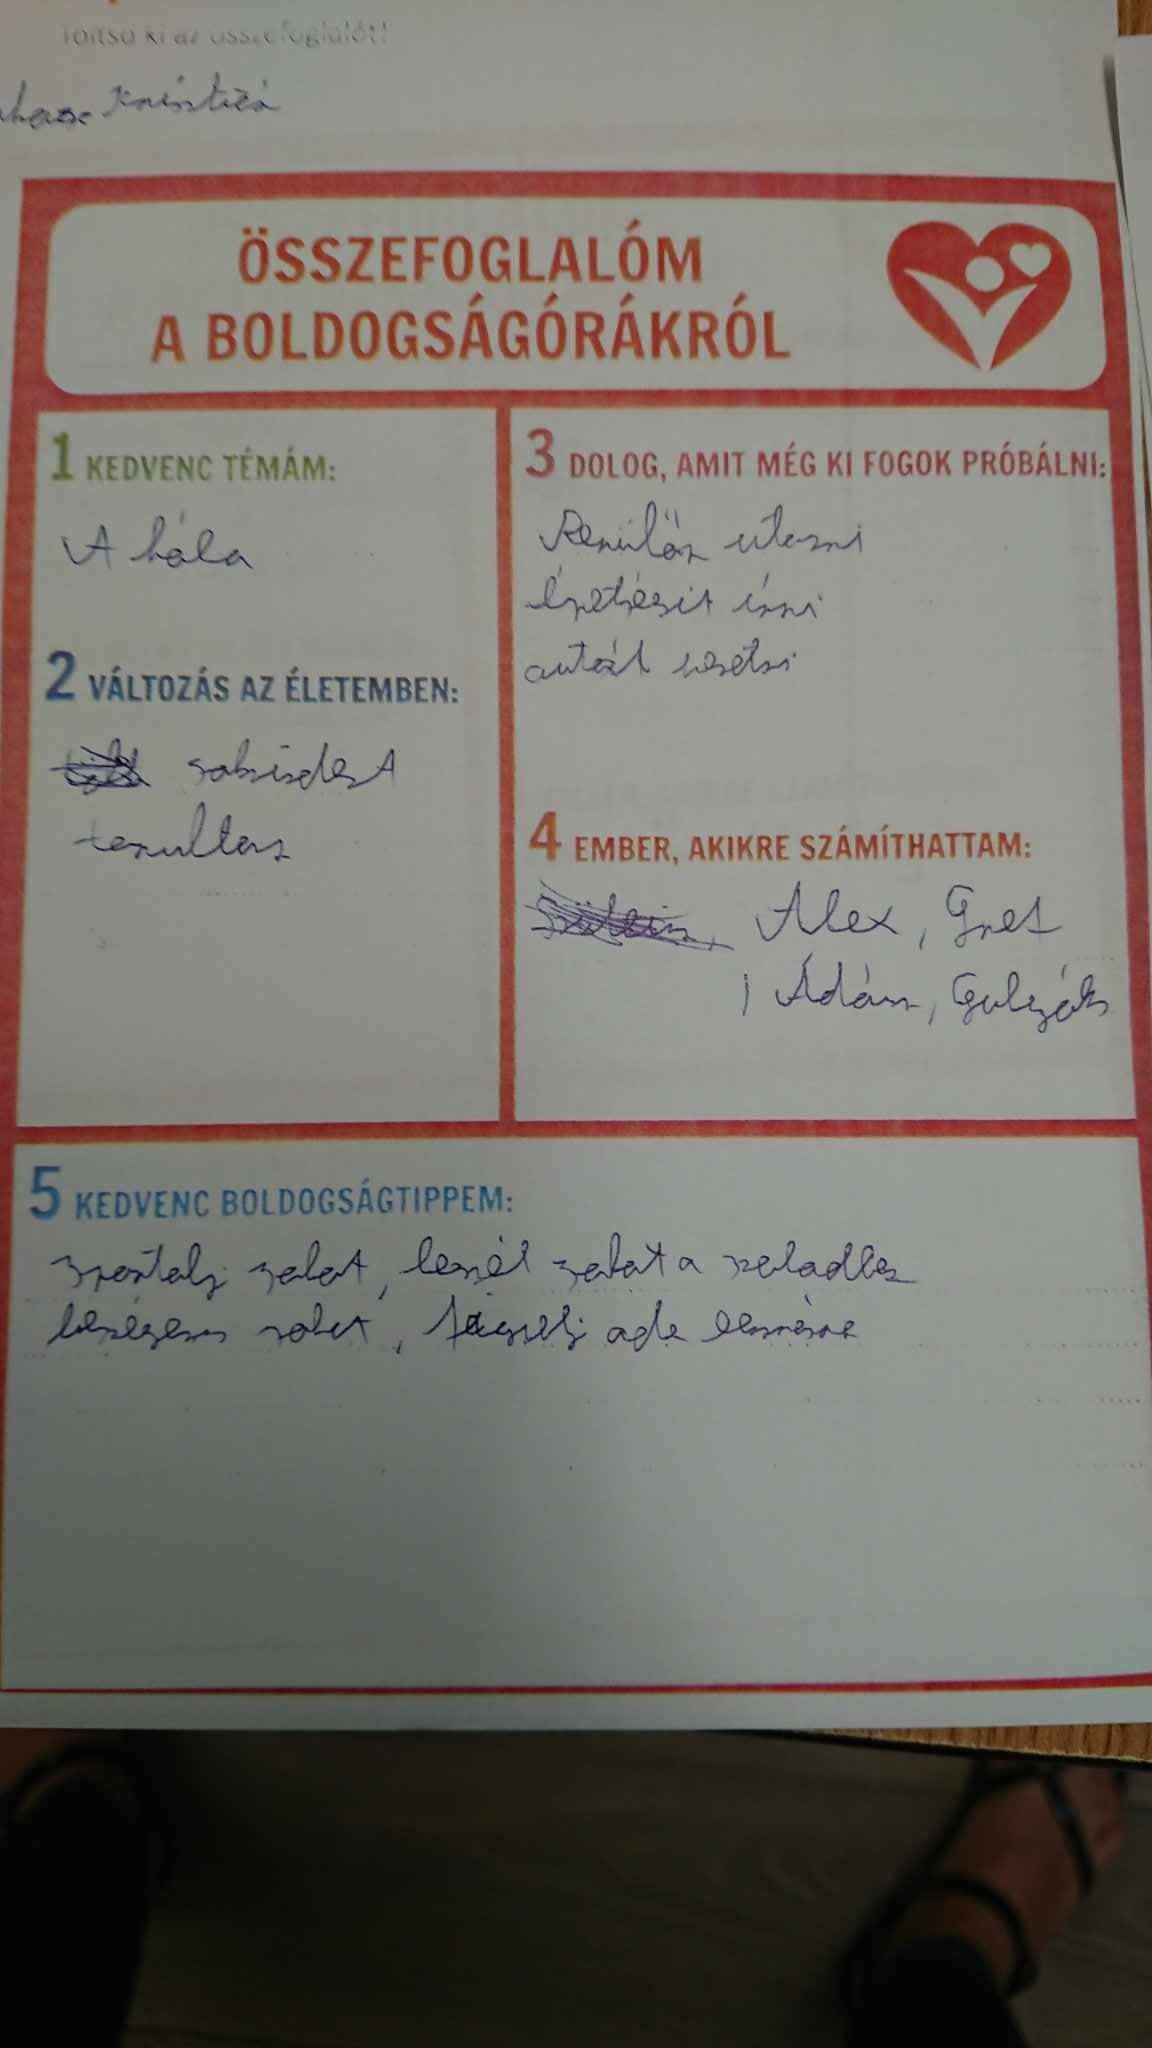 Töltsd ki az összefoglalót!
Krisztián
ÖSSZEFOGLALÓM
A BOLDOGSÁGÓRÁKRÓL
1 KEDVENC TÉMÁM:
A hála
2 VÁLTOZÁS AZ ÉLETEMBEN:
tanultam
3 DOLOG, AMIT MÉG KI FOGOK PRÓBÁLNI:
Repülőn utazni
érettségit írni
autót vezetni
4 EMBER, AKIKRE SZÁMÍTHATTAM:
Alex, Gret
, Ádám,
5 KEDVENC BOLDOGSÁGTIPPEM:
sportolj sokat, legyél sokat a családba
sokat,